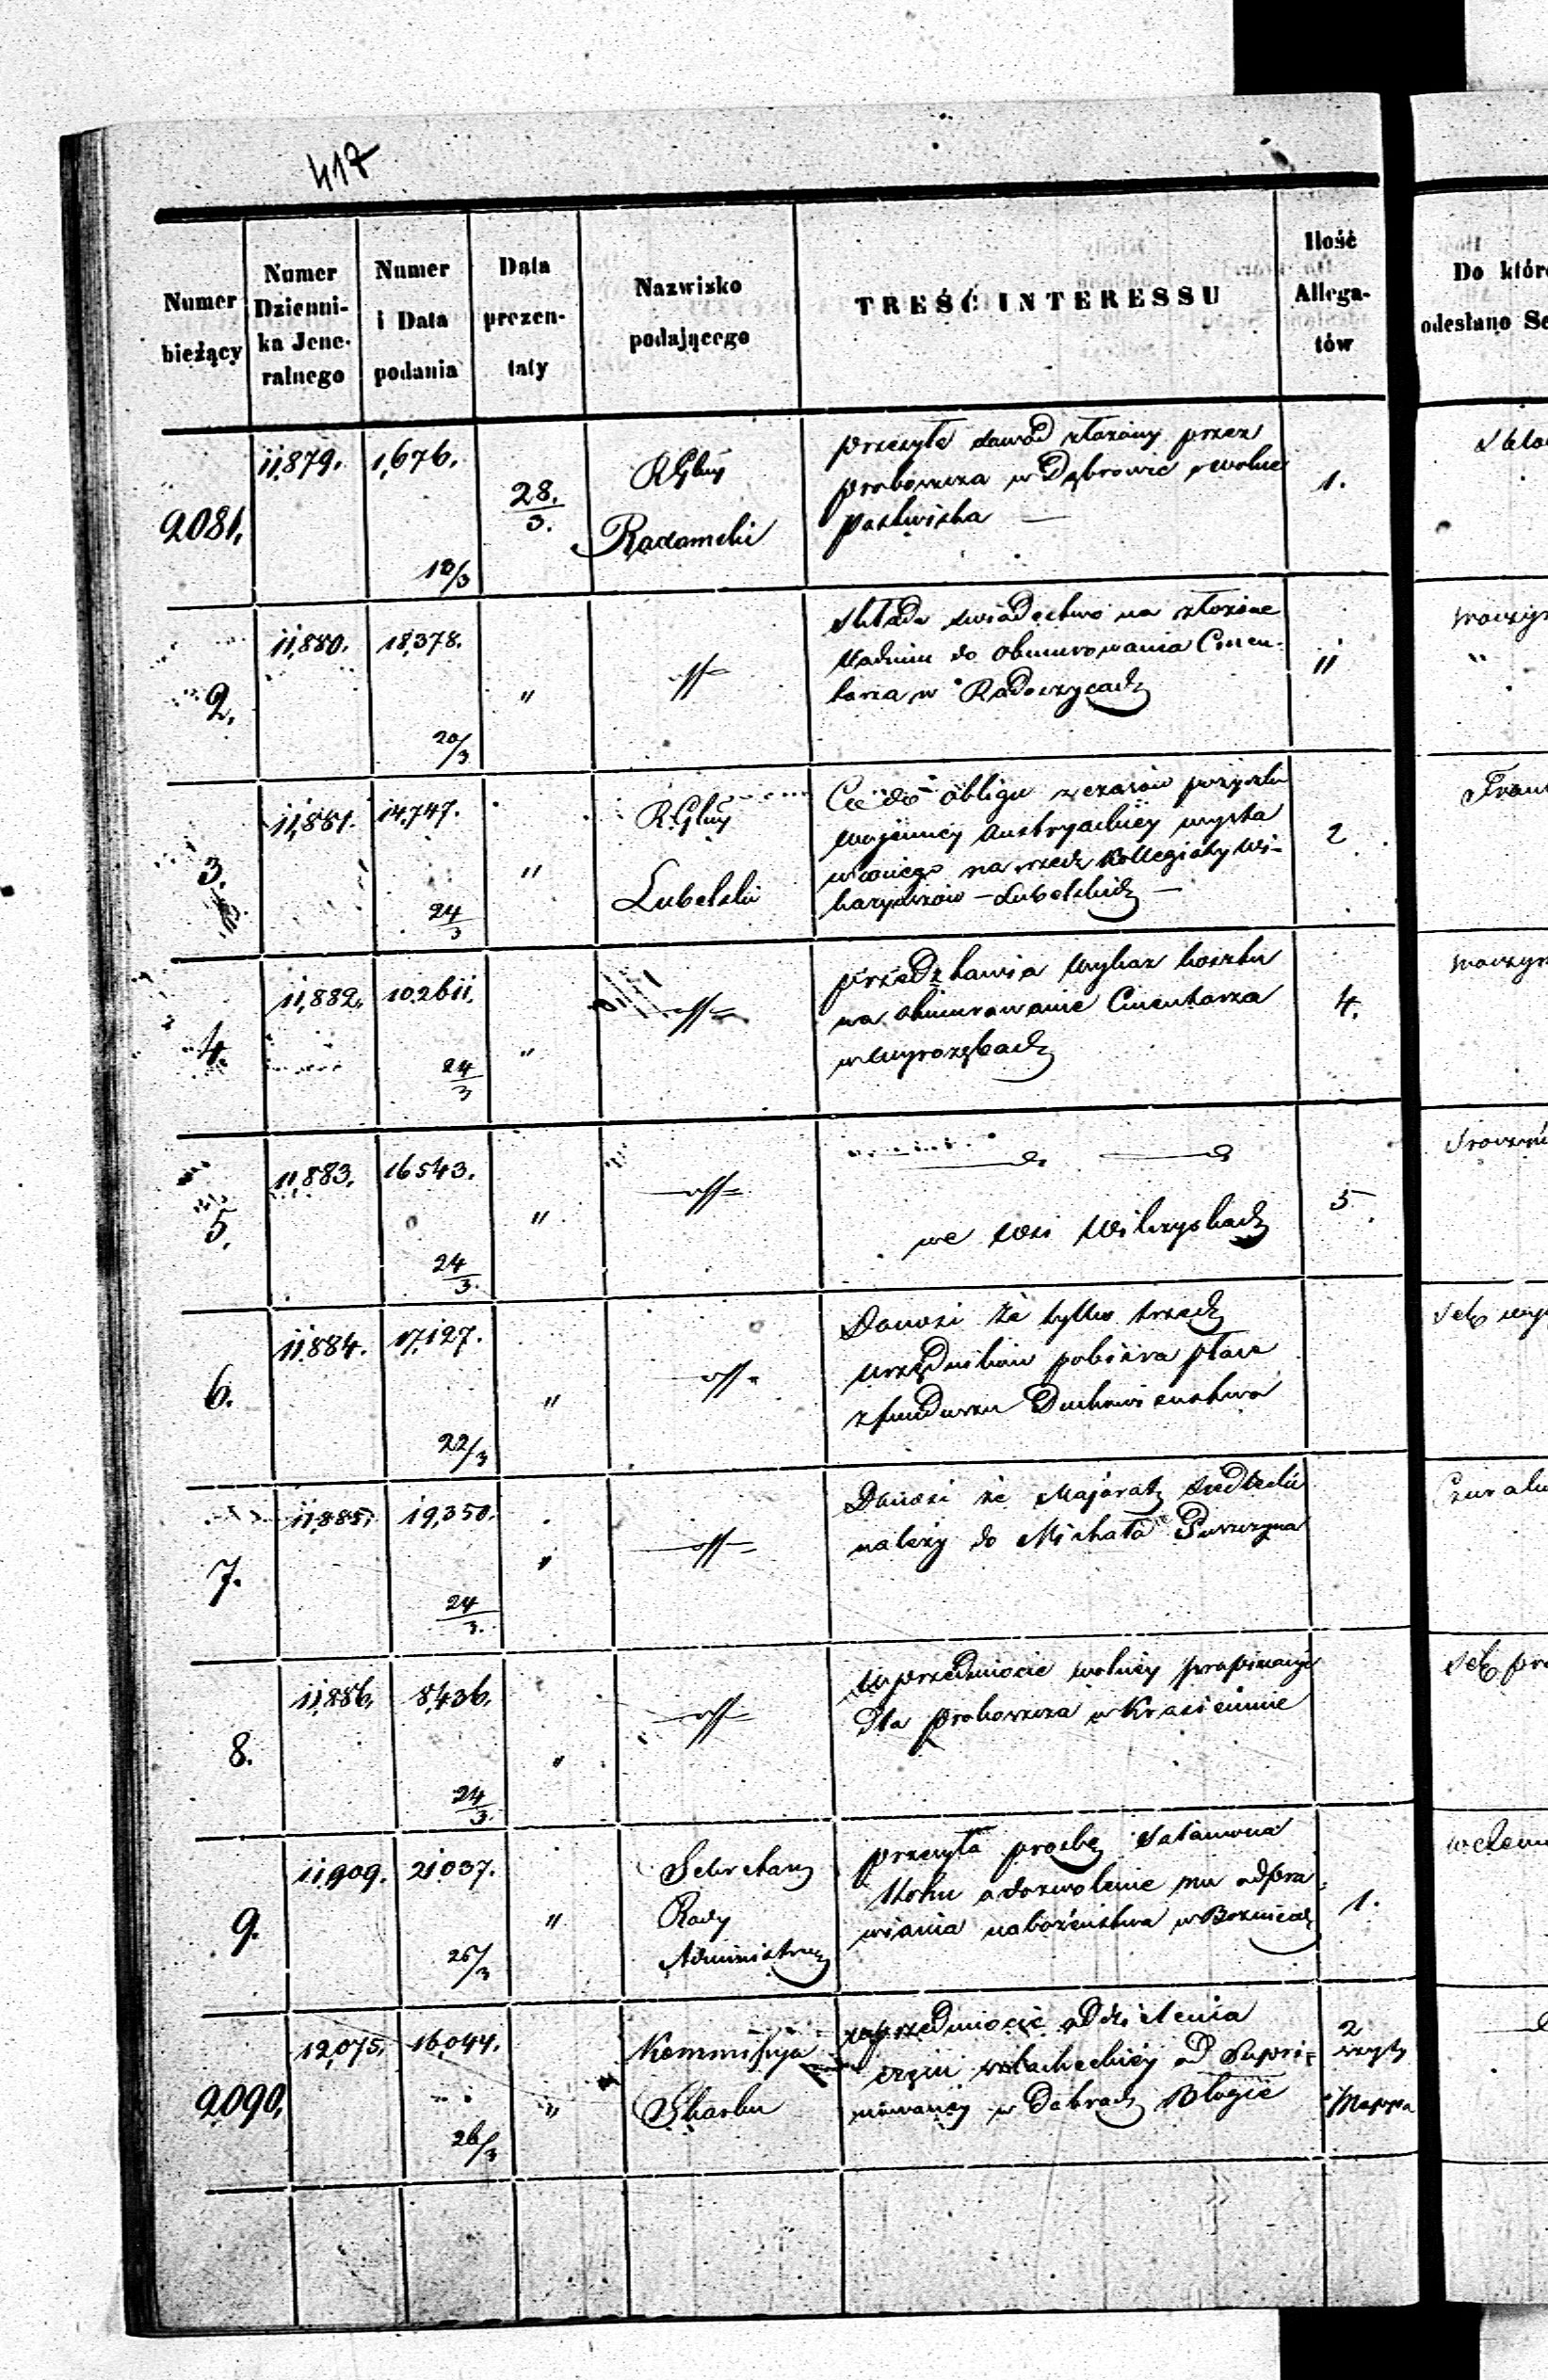 417
Numer bieżący
Numer Dzienni- ka Jene- ralnego
Numer i Data podania
Data prezen- taty
Nazwisko podającego
TREŚĆ INTERESSU
Ilość Allega- tów
Do któr
odesłano Se
2081. 11,879. 1,676. 18/3 28./3. R Gbny Radomski
przesyła dowód złożony przez
proboszcza w Dąbrowie wolne
pastwiska —
1.
2. 11,880. 18,378. 20/3 "
składa świadectwo na złożone
Vadium do obmurowania Cmen-
tarza w Radoszycach
11
3. 11,881. 14,747. 24/3 " R Gbny Lubelski
Co do obligu z czasów pożyczki
wojennej Austryackiej wysta
wionego na rzecz Kollegiaty Wi-
karyuszów Lubelskich —
2
4. 11,882. 10261. 24/3 "
przedstawia wykaz kosztu
na obmurowanie Cmentarza
w Wyrozębach
4.
5. 11,883. 16543. 24/3. "
we wsi Wilczyskach
5.
6. 11,884. 17,127. 22/3 "
Donosi że tylko trzech
urzędników pobiera płace
z funduszu Duchowieństwa
7. 11,885. 19,350. 24/3. "
Donosi że Majorat Siedlecki
należy do Michała
8. 11,886. 8,436. 24/3. "
W przedmiocie wolnej propinacyi
dla proboszcza w Krasieninie
9. 11,909. 21,037. 25/3 " Sekretarz
Rady
Administracy
przesyła prośbę Salamona
o dozwolenie mu odpra-
wiania nabożeństwa w Boznicach
1.
2090. 12,075. 16,044. 26/3 " Kommissya
Skarbu
w przedmiocie oddzielenia
części szlacheckiej od Supri-
mowanej w Dobrach Błogie
2
Mappa